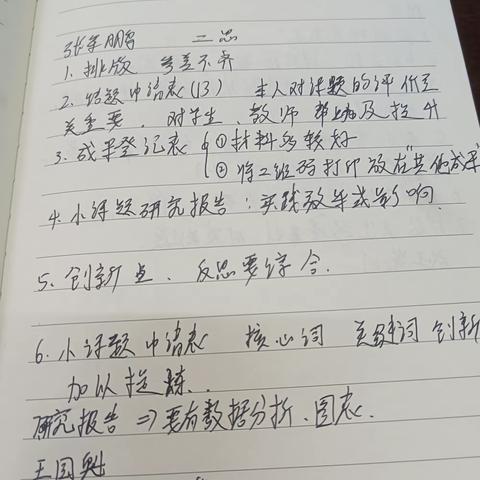 张年鹏 二思
1. 排版 参差不齐
2. 结题申请表(13) 本人对课题的评价至
关重要. 对学生、教师 帮助及提升
3. 成果登记表 { ①材料多较好
② 将二维码打印放在"其他成果
4. 小课题研究报告:实践效果或影响.
5. 创新点、反思要综合.
6. 小课题申请表 核心词 关键词 创新
加以提炼..
研究报告 ⇒ 要有数据分析、图表.
王国魁